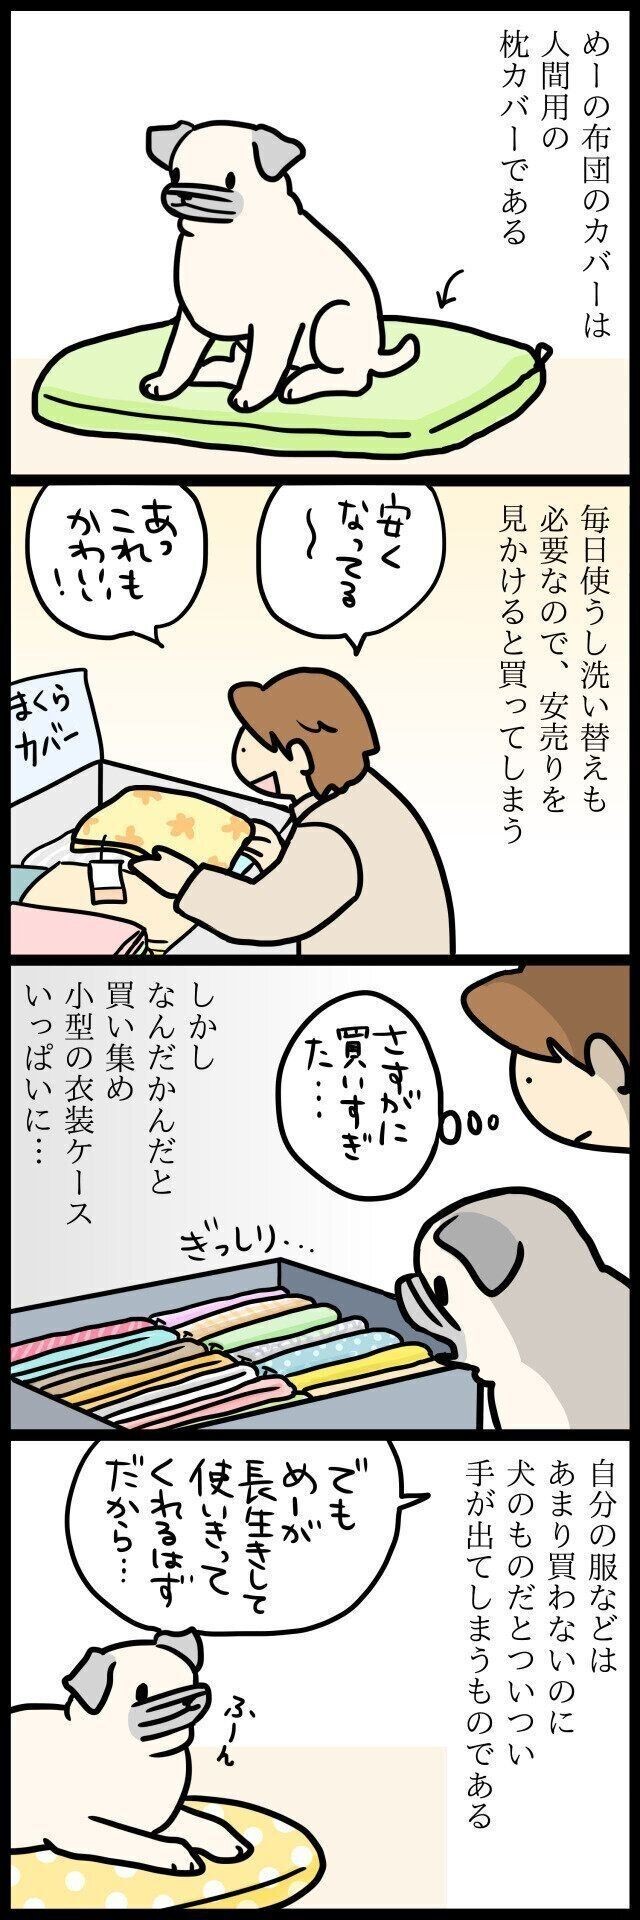 めーの布団のカバーは
人間用の
枕カバーである
毎日使うし洗い替えも
必要なので、安売りを
見かけると買ってしまう
安く
なってる
〜
あっ
これも
かわいい!
まくら
カバー
さすがに
買いすぎ
た…
しかし
なんだかんだと
買い集め
小型の衣装ケース
いっぱいに…
ぎっしり…
自分の服などは
あまり買わないのに
犬のものだとついつい
手が出てしまうものである
でも
めーが
長生きして
使いきって
くれるはず
だから…
ふーん